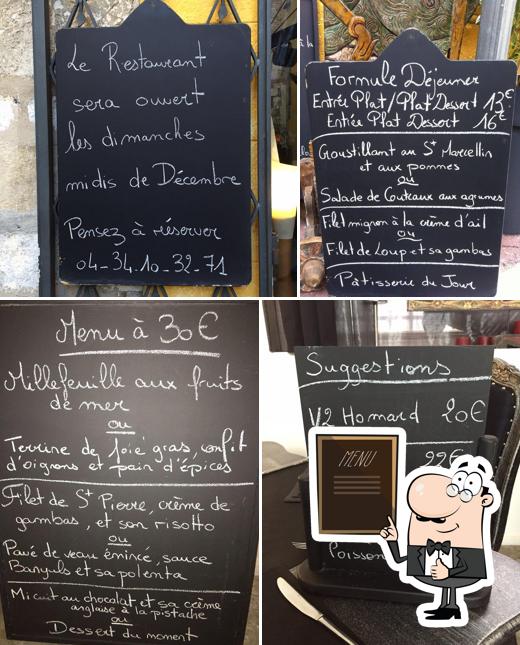 Le Restaurant
sera ouvert
les dimanches
midis de Décembre
Pensez à réserver
04_34_10_32_71
Formule Déjeuner
Entrée Plat/Plat Dessert 13€
Entrée Plat Dessert 16€
Croustillant au St Marcellin
et aux pommes
ou
Salade de Couteaux aux agrumes
Filet mignon à la crème d'ail
ou
Filet de Loup et sa gambas
Pâtisserie du Jour
Menu à 30€
Millefeuille aux fruits
de mer
ou
Terrine de foie gras, confit
d'oignons et pain d'épices
Filet de St Pierre, crème de
gambas, et son risotto
ou
Pavé de veau émincé, sauce
Banyuls et sa polenta
Mi cuit au chocolat, et sa crème
anglaise à la pistache
ou
Dessert du moment
Suggestions
1/2 Homard 20€
22€
MENU
Poisson